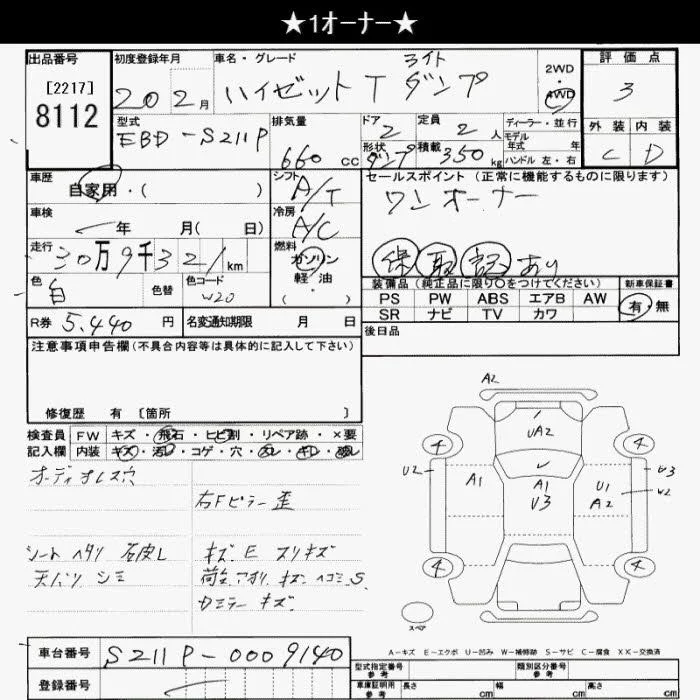 ★1オーナー★
出品番号
[2217]
8112
初度登録年月
20 2月
車名・グレード
ライト
ハイゼット T ダンプ
2WD
・
4WD
評価点
3
型式
EBD-S211P
排気量
660 cc
ドア
2
定員
2 人
形状
ダンプ
積載
350 kg
ディーラー・並行
モデル
年式 年
ハンドル 左・右
外装 内装
C D
車歴
自家用・( )
シフト
A/T
セールスポイント (正常に機能するものに限ります)
ワンオーナー
保 取 記 あり
車検
年 月( 日)
冷房
A/C
走行
30万9千321km
燃料
ガソリン
軽油
・
( )
色
白
色替
色コード
W20
装備品(純正品に限り○をつけてください)
新車保証書
PS PW ABS エアB AW
有・無
SR ナビ TV カワ
R券 5,440 円
名変通知期限 月 日
後日品
注意事項申告欄(不具合内容等は具体的に記入して下さい)
修復歴 有 〔箇所 〕
検査員
記入欄
FW キズ・飛石・ヒビ割・リペア跡・×要
内装 キズ・汚レ・コゲ・穴
オーディオレス穴
右Fピラー歪
シート ヘタリ
天バリ シミ
キズ E スリキズ
荷台アオリ キズ ヘコミ S
カミラー キズ
A2
UA2
4 4
U2
A1
A1
U3
U1
A2
U3
W2
4 4
スペア
A-キズ E-エクボ U-凹み W-補修跡 S-サビ C-腐食 XX-交換済
車台番号 S211P-0009140
登録番号
型式指定番号
参考
類別区分番号
参考
車庫証明用
参考
長さ cm
幅 cm
高さ cm